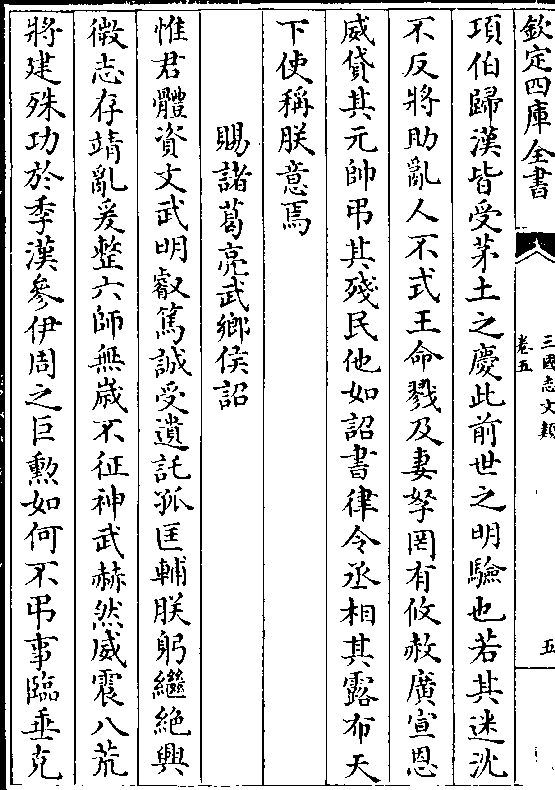 欽定四庫全書
三國志文類
卷五
五
項伯歸漢皆受茅土之慶此前世之明驗也若其迷沈
不反將助亂人不式王命戮及妻孥罔有攸赦廣宣恩
威貸其元帥弔其殘民他如詔書律令丞相其露布天
下使稱朕意焉
賜諸葛亮武鄉侯詔
惟君體資文武明叡篤誠受遺託孤匡輔朕躬繼絶興
微志存靖亂爰整六師無歲不征神武赫然威震八荒
將建殊功於季漢參伊周之巨勲如何不弔事臨垂克